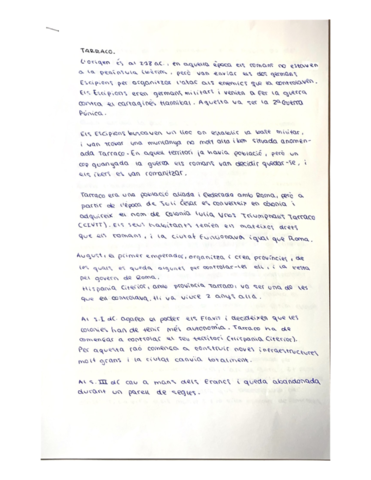 TARRACO.
L'origen és al 218 aC. en aquella època els romans no estaven
a la península ibèrica, però van enviar els dos germans
Escipions per organitzar l'atac als enemics que el controlaven.
Els Escipions eren germans militars i venien a fer la guerra
contra el cartaginès Hannibal. Aquesta va ser la 2ª Guerra
Púnica.
Els Escipions buscaven un lloc on establir la base militar,
i van trobar una muntanya no molt alta i ben situada anomenada
nada Tarraco. En aquell territori ja havia població, però un
cop guanyada la guerra els romans van decidir quedar-se, i
els ibers es van romanitzar.
Tarraco era una població aliada i federada amb Roma, però a
partir de l'època de Juli Cèsar es converteix en colònia i
adquireix el nom de Colonia Iulia Urbs Triumphalis Tarraco
(CIUTT). Els seus habitants tenien els mateixos drets
que els romans, i la ciutat funcionava igual que Roma.
August, el primer emperador, organitza i crea províncies, de
les quals es queda algunes per controlar-les ell, i la resta
pel govern de Roma.
Hispania Citerior, amb província Tarraco, va ser una de les
que es controlava. Hi va viure 2 anys allà.
Al s.I dC agafen el poder els Flavis i decideixen que les
colònies han de tenir més autonomia. Tarraco ha de
començar a controlar el seu territori (Hispania Citerior).
Per aquesta raó comença a construir noves infraestructures
molt grans i la ciutat canvia totalment.
Al s. III dC cau a mans dels francs i queda abandonada
durant un parell de segles.